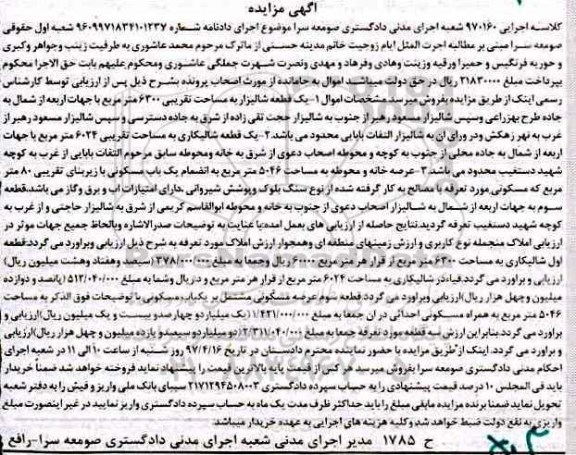 آگهی مزایده
کلاسه اجرایی ۹۷۰۱۶۰ شعبه اجرای مدنی دادگستری صومعه سرا موضوع اجرای دادنامه شماره ۹۶۰۹۹۷۱۸۳۴۱۰۱۲۳۷ شعبه اول حقوقی
صومعه سرا مبنی بر مطالبه اجرت المثل ایام زوجیت خانم مدینه حسنی از ماترک مرحوم محمد عاشوری به طرفیت زینب وجواهر وکبری
و حوریه فرنگیس و حمیرا ورقیه وزینت وهادی وفرهاد و مهدی ونصرت شهرت جملگی عاشوری ومحکوم علیهم بابت حق الاجرا محکوم
بپرداخت مبلغ ۲۱۸۳۰۰۰۰ ریال در حق دولت میباشند اموال به جامانده از مورث اصحاب پرونده بشرح ذیل پس از ارزیابی توسط کارشناس
رسمی اینک از طریق مزایده بفروش میرسد. مشخصات اموال ۱- یک قطعه شالیزار به مساحت تقریبی ۶۳۰۰ متر مربع با جهات اربعه از شمال به
جاده طرح بهزراعی وسپس شالیزار مسعود رهبر از جنوب به شالیزار حجت تقی زاده از شرق به جاده دسترسی و سپس شالیزار مسعود رهبر از
غرب به نهر زهکش ودر ورای آن به شالیزار التفات بابایی محدود می باشد. ۲- یک قطعه شالیکاری به مساحت تقریبی ۶۰۲۴ متر مربع با جهات
اربعه از شمال به جاده محلی از جنوب به کوچه و محوطه اصحاب دعوی از شرق به خانه ومحوطه سابق مرحوم التفات بابایی از غرب به کوچه
شهید دستغیب محدود می باشد. ۳- عرصه خانه و محوطه به مساحت ۵۰۴۶ متر مربع به انضمام یک باب مسکونی با زیربنای تقریبی ۸۰ متر
مربع که مسکونی مورد تعرفه با مصالح به کار گرفته شده از نوع سنگ بلوک وپوشش شیروانی ،دارای امتیازات اب و برق وگاز می باشد،قطعه
سوم به جهات اربعه از شمال به شالیزار اصحاب دعوی از جنوب به خانه و محوطه ابوالقاسم کریمی از شرق به شالیزار حاجتی و از غرب به
کوچه شهید دستغیب تعرفه گردید.نتایج حاصله از ارزیابی های بعمل امده:با عنایت به توضیحات صدرالاشاره وبالحاظ جمیع جهات موثر در
ارزیابی املاک منجمله نوع کاربری و ارزش زمینهای منطقه ای وهمجوار ارزش املاک مورد تعرفه به شرح ذیل ارزیابی وبراورد می گردد:قطعه
اول شالیکاری به مساحت ۶۳۰۰ متر مربع از قرار هر متر مربع ۶۰۰۰۰ ریال وجمعا به مبلغ ۳۷۸/۰۰۰/۰۰۰ (سیصد وهفتاد وهشت میلیون ریال)
ارزیابی و براورد می گردد. شالیکاری به مساحت ۶۰۲۴ متر مربع از قرار هر متر مربع و در ریال وشما به مبلغ ۵۱۲/۰۴۰/۰۰۰ (پانصد و دوازده
میلیون و چهل هزار ریال)ارزیابی وبراورد می گردد.قطعه سوم عرصه مسکونی مشتمل بر یکباب مسکونی با توضیحات فوق الذکر به مساحت
۵۰۴۶ متر مربع به همراه مسکونی احداثی در ان جمعا به مبلغ ۱/۴۲۱/۰۰۰/۰۰۰ (یک میلیارد دو چهارصدو بیست و یک میلیون ریال)ارزیابی و
براورد می گردد.بنابراین ارزش سه قطعه مورد تعرفه جمعا به مبلغ ۲/۳۱۱/۰۴۰/۰۰۰ (دو میلیارد و سیصدو یازده میلیون و چهل هزار ریال)ارزیابی
و براورد می گردد. اینک از طریق مزایده با حضور نماینده محترم دادستان در تاریخ ۹۷/۴/۱۶ روز شنبه از ساعت ۱۰ الی ۱۱ در شعبه اجرای
احکام مدنی دادگستری صومعه سرا بفروش میرسد هر کس از قیمت پایه بالاترین قیمت را پیشنهاد نماید فروخته خواهد شد ضمناً خریدار
باید فی المجلس ۱۰ درصد قیمت پیشنهادی را به حساب سپرده دادگستری ۲۱۷۱۲۹۴۵۰۸۰۰۳ سیبای بانک ملی واریز و فیش را به دفتر شعبه
تحویل نماید ضمنا برنده مزایده مابقی مبلغ را باید حداکثر ظرف مدت یک ماه به حساب سپرده دادگستری واریز نمایید در غیر اینصورت مبلغ
واریزی به نفع دولت ضبط خواهد شد و کلیه هزینه های اجرایی به عهده خریدار میباشد.
ح ۱۷۸۵ مدیر اجرای مدنی شعبه اجرای مدنی دادگستری صومعه سرا-رافع